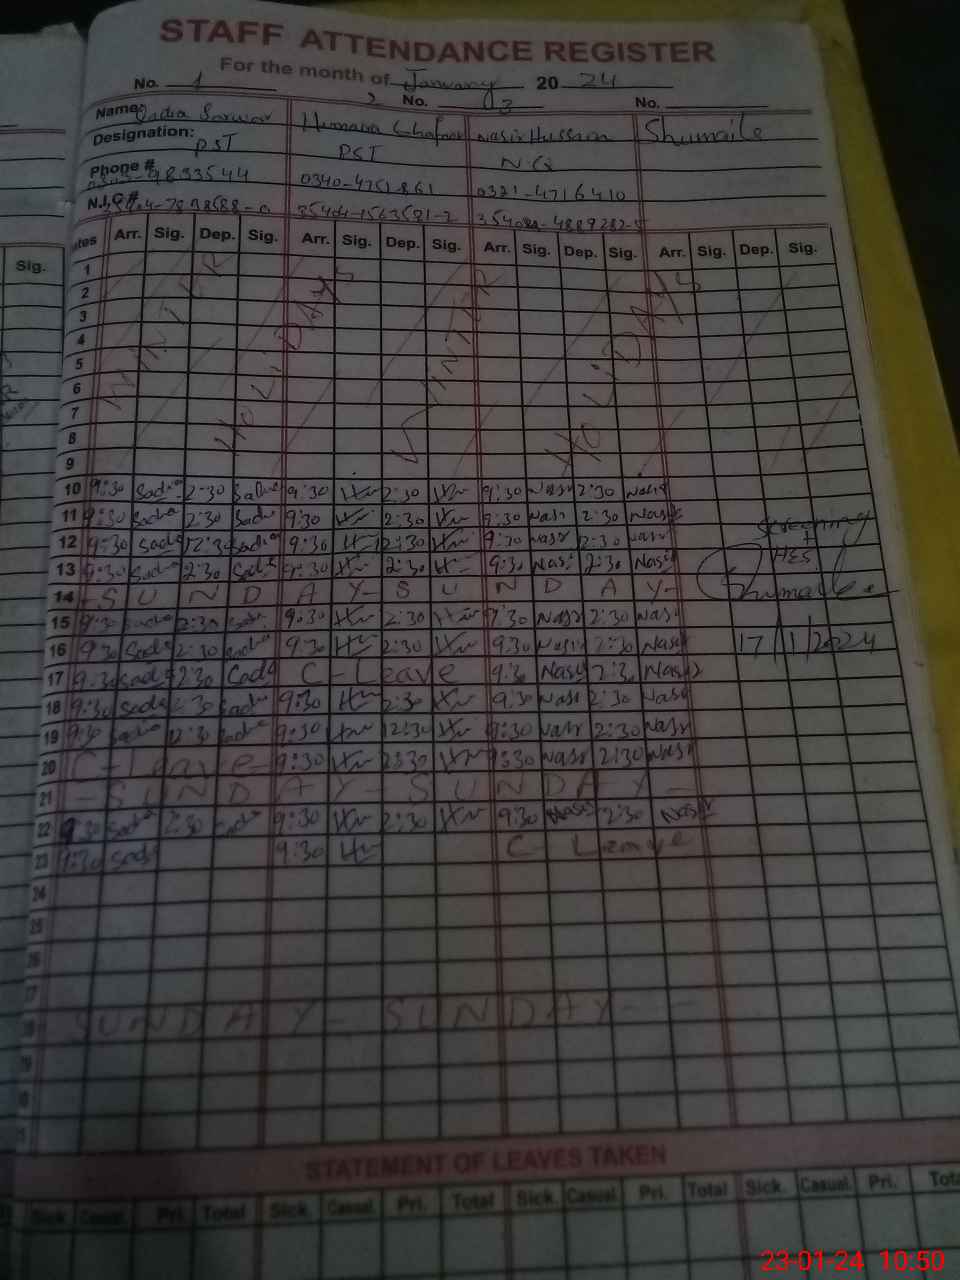 STAFF ATTENDANCE REGISTER
For the month of January 2024
No. 1 No. 3 No.
Name: Sadia Sarwar Humaira Ghafoor Nasir Hussain Shumaila
Designation: PST PST N.Q
Phone # 9833544 0340-4751861 0321-4716410
N.I.C #
Dates Arr. Sig. Dep. Sig. Arr. Sig. Dep. Sig. Arr. Sig. Dep. Sig. Arr. Sig. Dep. Sig.
Sig.
1
2
3
4
5
6
7
8
9
WINTER HOLIDAYS WINTER HOLIDAYS
10 9:30 Sadia 2:30 Sadia 9:30 2:30 9:30 Nasir 2:30 Nasir
11 9:30 Sadia 2:30 Sadia 9:30 2:30 9:30 Nasir 2:30 Nasir
12 9:30 Sadia 12:30 Sadia 9:30 12:30 9:30 Nasir 2:30 Nasir
13 9:30 Sadia 2:30 Sadia 9:30 2:30 9:30 Nasir 2:30 Nasir
Screening
+
HES
Shumaila
14 - S U N D A Y - S U N D A Y -
15 9:30 Sadia 2:30 Sadia 9:30 2:30 9:30 Nasir 2:30 Nasir
16 9:30 Sadia 2:30 Sadia 9:30 2:30 9:30 Nasir 2:30 Nasir 17/1/2024
17 9:30 Sadia 2:30 Sadia C-Leave 9:30 Nasir 2:30 Nasir
18 9:30 Sadia 2:30 Sadia 9:30 2:30 9:30 Nasir 2:30 Nasir
19 9:30 Sadia 12:30 Sadia 9:30 12:30 9:30 Nasir 2:30 Nasir
20 C-Leave- 9:30 2:30 9:30 Nasir 2:30 Nasir
21 - S U N D A Y - S U N D A Y -
22 9:30 Sadia 2:30 Sadia 9:30 2:30 9:30 Nasir 2:30 Nasir
23 9:30 Sadia 9:30 C- Leave
24
25
26
27
28 SUNDAY - SUNDAY - -
29
STATEMENT OF LEAVES TAKEN
Sick Casual Pri. Total Sick. Casual. Pri. Total Sick. Casual. Pri. Total Sick. Casual. Pri. Total
23-01-24 10:50